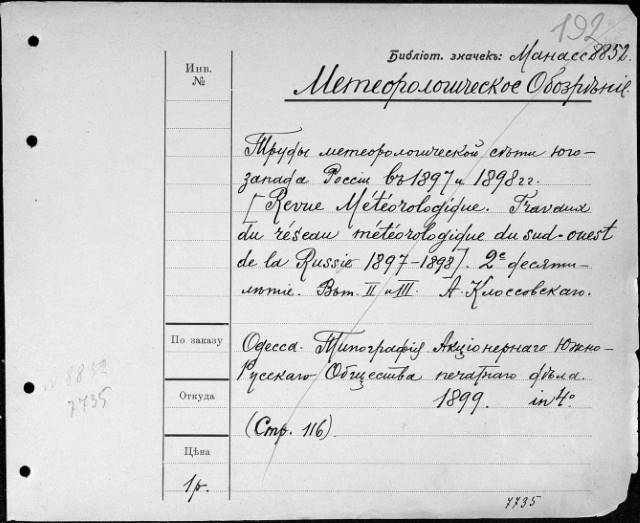 192
Библіот. значекъ: Манасс 8852.
Инв.
№
Метеорологическое Обозрѣніе
Труды метеорологической сѣти юго-
запада Россіи въ 1897 и 1898 гг.
[Revue Météorologique. Travaux
du réseau météorologique du sud-ouest
de la Russie 1897-1898]. 2е десяти-
лѣтіе. Вып. II и III. А. Клоссовскаго.
По заказу
Одесса. Типографія Акціонернаго Южно-
Русскаго Общества печатнаго дѣла.
8852
7735
Откуда
1899. in 4°
(Стр. 116).
Цѣна
1р.
7735